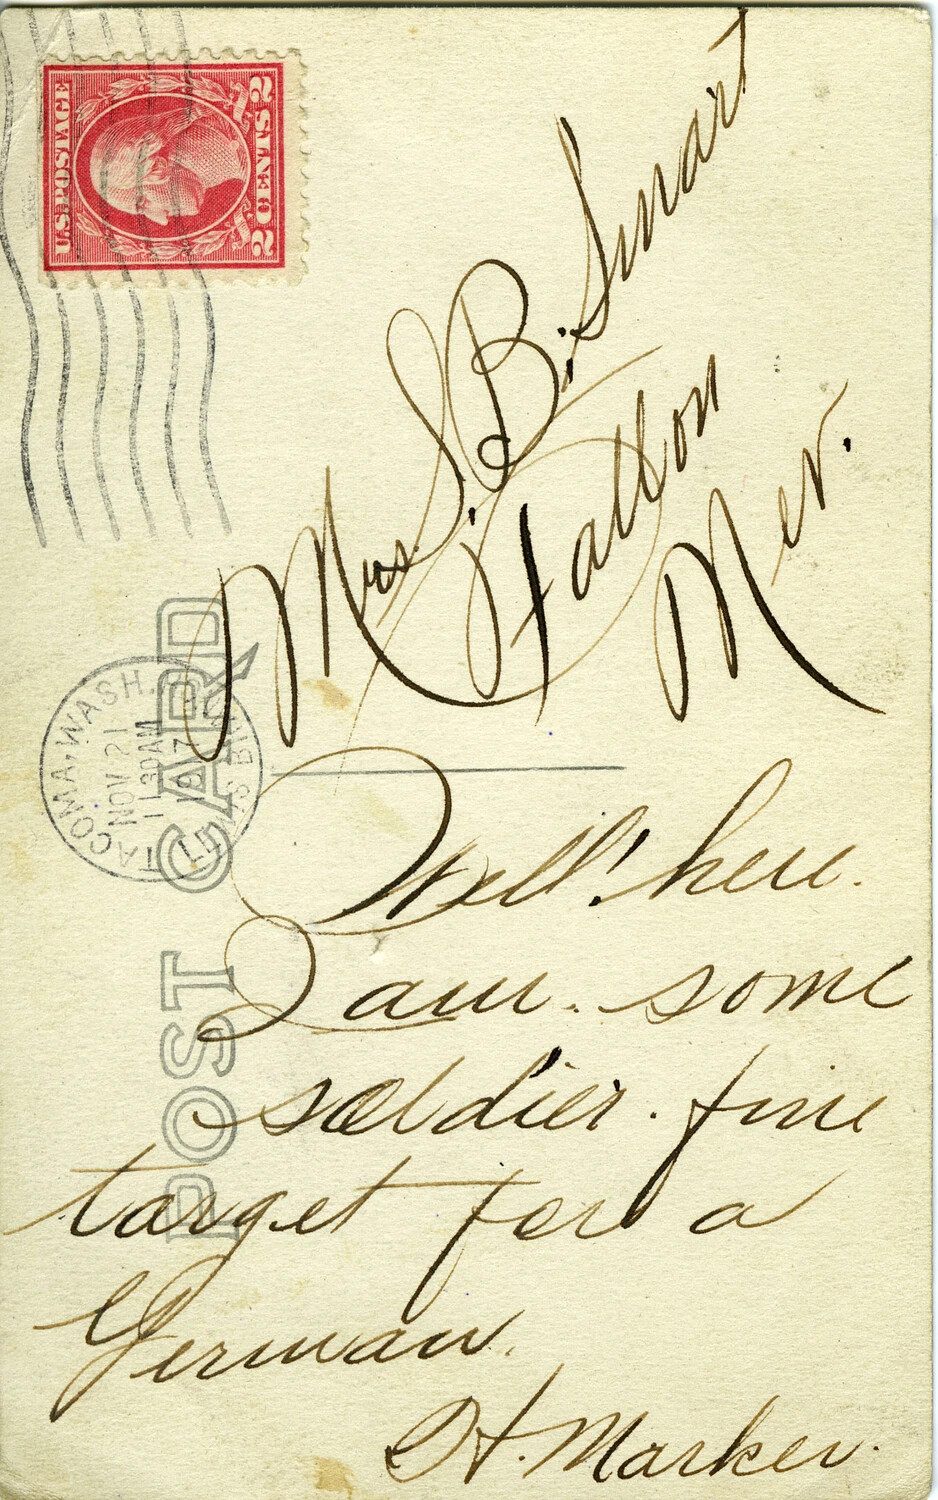 U.S. POSTAGE
2 CENTS 2
TACOMA, WASH.
NOV 21
11 30 AM
1917
LEWIS BR.
POST CARD
Mrs. S. B. Smart
Fallon
Nev.
Well! here
I am. some
soldier. fine
target for a
German.
H. Marker.